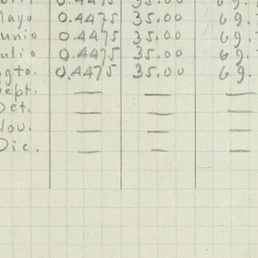 0.4475 35.00 69.7
Mayo 0.4475 35.00 69.7
unio 0.4475 35.00 69.7
ulio 0.4475 35.00 69.7
gto. 0.4475 35.00 69.7
ept. — — —
Oct. — — —
Nov. — — —
Dic. — — —